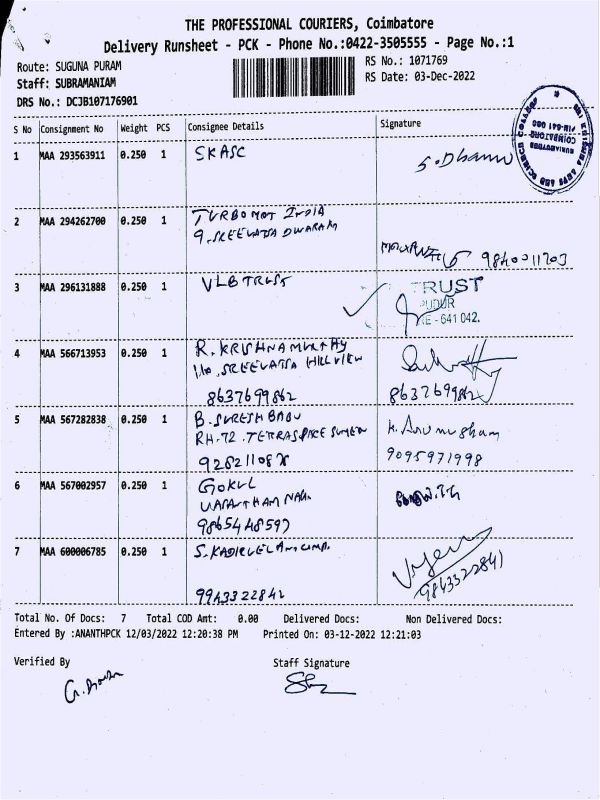 THE PROFESSIONAL COURIERS, Coimbatore
Delivery Runsheet - PCK - Phone No.:0422-3505555 - Page No.:1
Route: SUGUNA PURAM
RS No.: 1071769
Staff: SUBRAMANIAM
RS Date: 03-Dec-2022
DRS No.: DCJB107176901
S No Consignment No Weight PCS Consignee Details Signature
1 MAA 293563911 0.250 1 SKASC S. Dhanu
2 MAA 294262700 0.250 1 TURBOMOT INDIA
9, SREEVATSA DWARAM
3 MAA 296131888 0.250 1 VLB TRUST TRUST
PUDUR
RE - 641 042.
4 MAA 566713953 0.250 1 R. KRISHNAMURTHY
110, SREEVATSA HILLVIEW
8637699862 8637699862
5 MAA 567282838 0.250 1 B. SURESH BABU K. Arumugham
RH-72
9095971998
6 MAA 567002957 0.250 1 GOKUL
9865448597
7 MAA 600006785 0.250 1
9943322841 9843322841
Total No. Of Docs: 7 Total COD Amt: 0.00 Delivered Docs: Non Delivered Docs:
Entered By :ANANTHPCK 12/03/2022 12:20:38 PM Printed On: 03-12-2022 12:21:03
Verified By Staff Signature